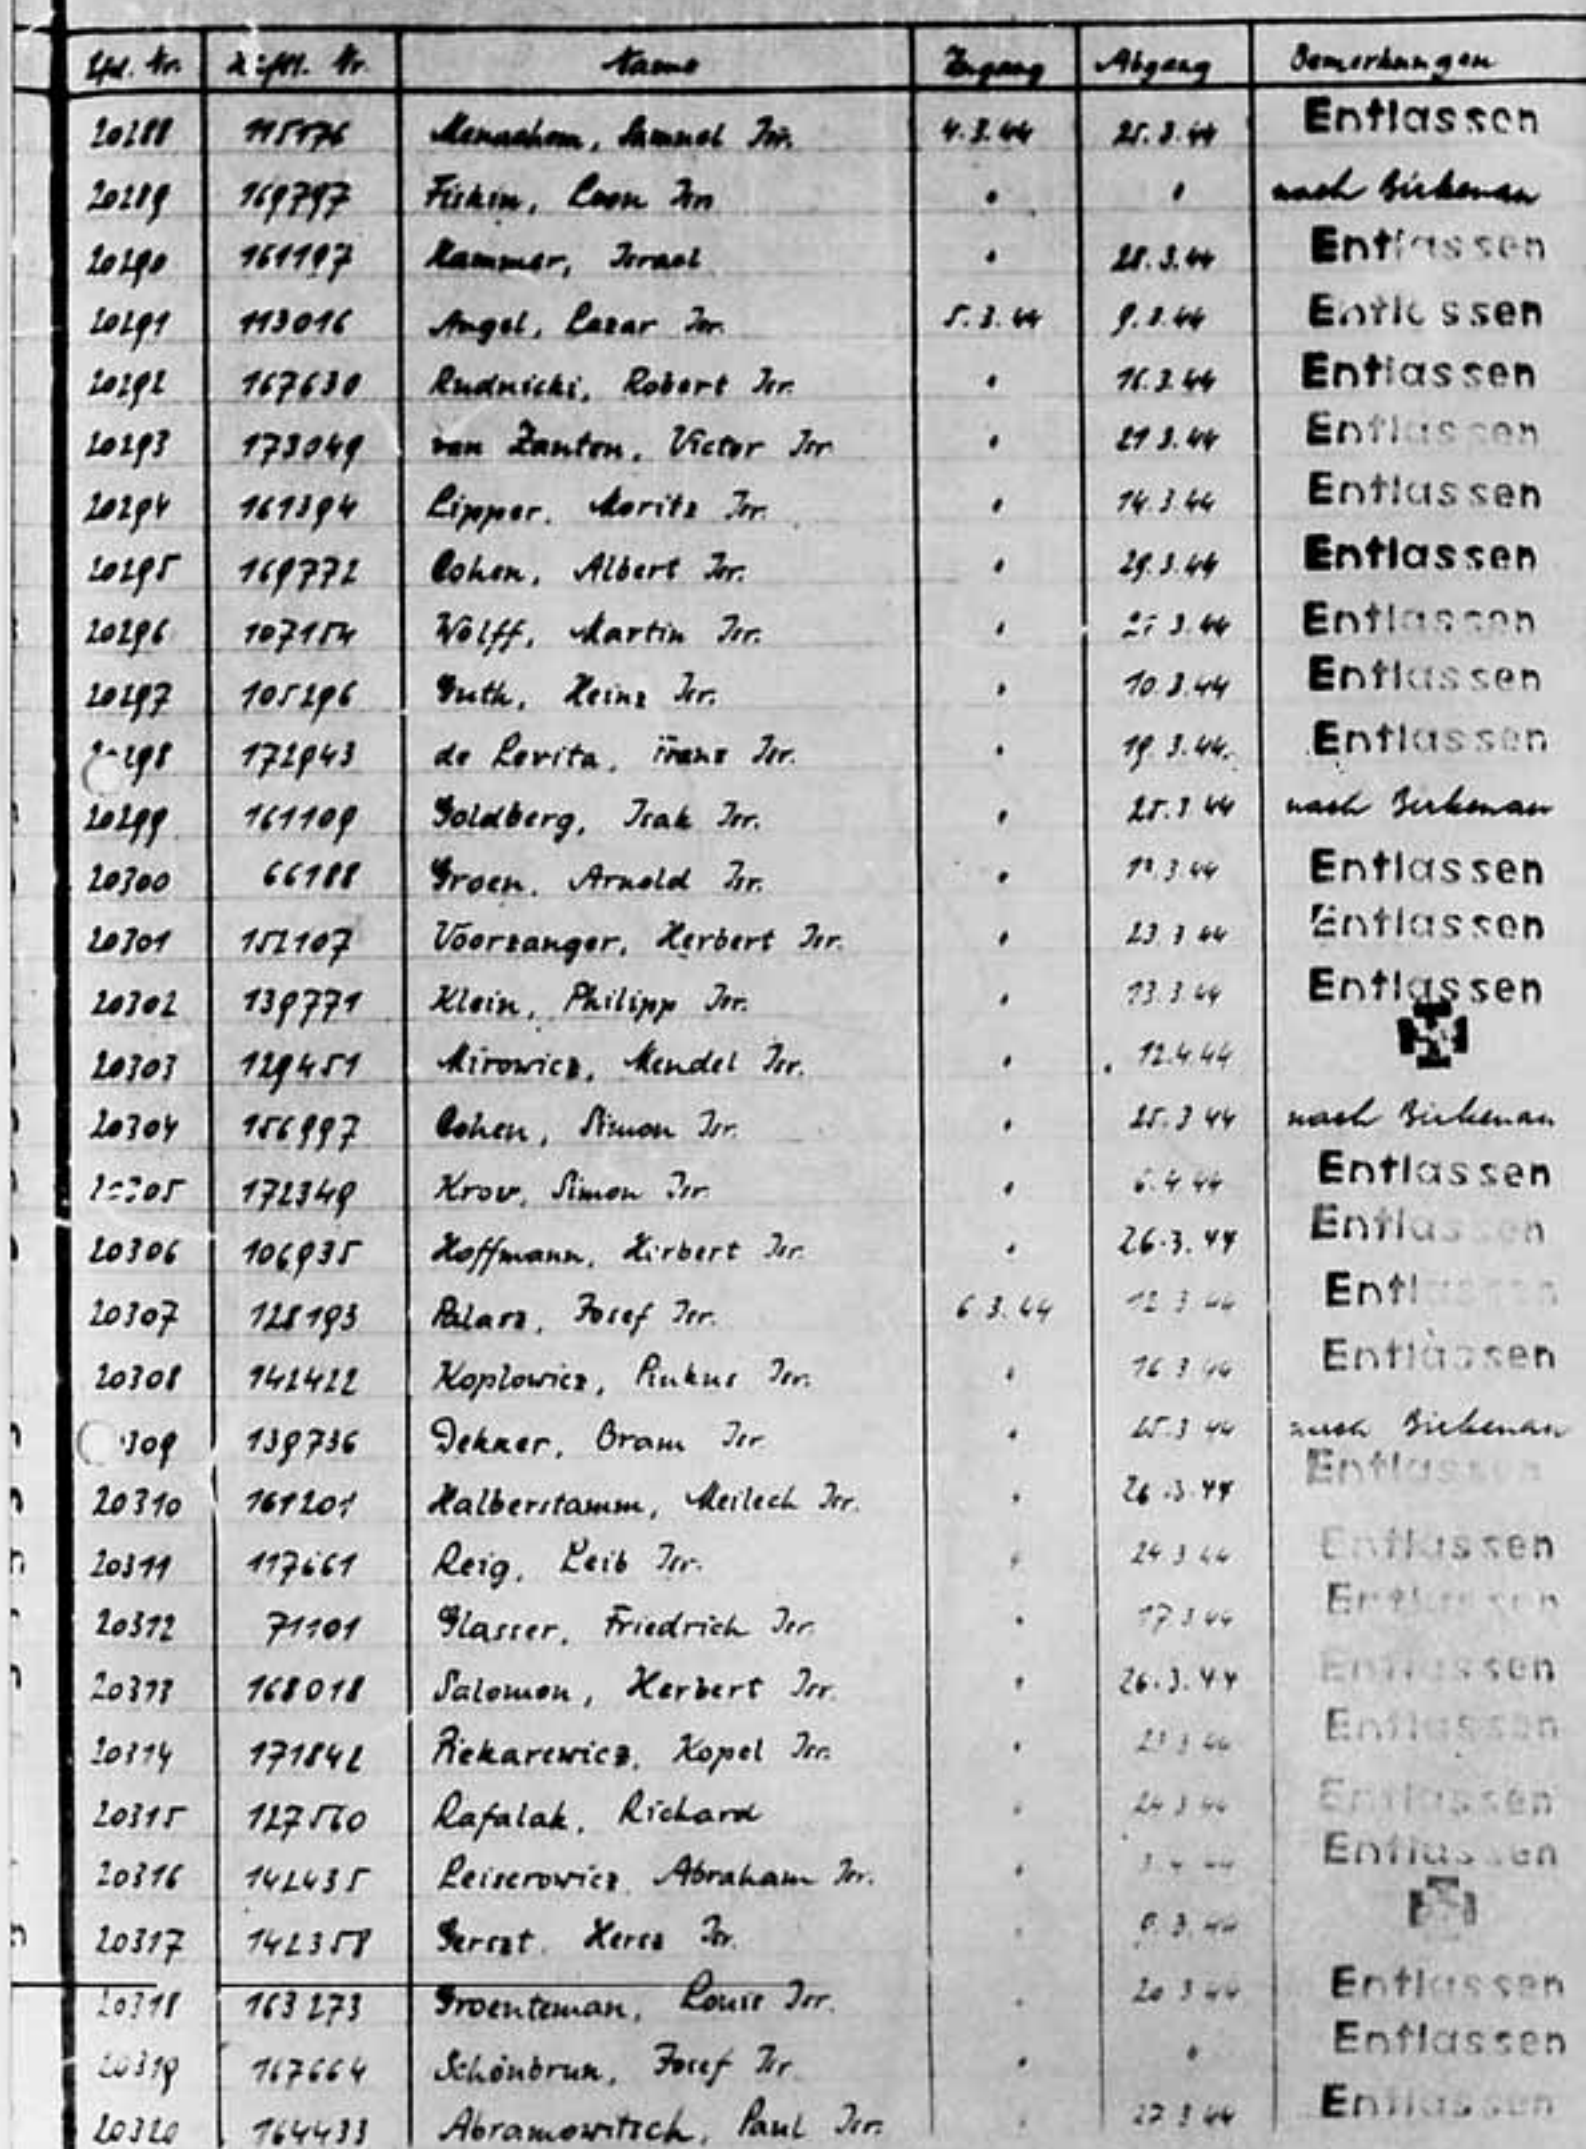 Lfd. Nr. Häftl. Nr. Name Zugang Abgang Bemerkungen
20288 115176 Menachem, Samuel Isr. 4.3.44 25.3.44 Entlassen
20289 169797 Fiskin, Leon Isr. " " nach Birkenau
20290 161197 Kammer, Israel " 28.3.44 Entlassen
20291 113016 Angel, Lazar Isr. 5.3.44 9.3.44 Entlassen
20292 167630 Rudnicki, Robert Isr. " 16.3.44 Entlassen
20293 173049 van Zanten, Victor Isr. " 21.3.44 Entlassen
20294 161394 Lipper, Moritz Isr. " 14.3.44 Entlassen
20295 169772 Cohen, Albert Isr. " 29.3.44 Entlassen
20296 107154 Wolff, Martin Isr. " 3.44 Entlassen
20297 105296 Guth, Heinz Isr. " 10.3.44 Entlassen
298 172943 de Levita, Franz Isr. " 19.3.44. Entlassen
20299 161109 Goldberg, Isak Isr. " 25.3.44 nach Birkenau
20300 66188 Groen, Arnold Isr. " 3.44 Entlassen
20301 152107 Voorzanger, Herbert Isr. " 23.3.44 Entlassen
20302 139771 Klein, Philipp Isr. " 13.3.44 Entlassen
20303 129451 Mirowicz, Mendel Isr. " 12.4.44
20304 156997 Cohen, Simon Isr. " 25.3.44 nach Birkenau
20305 172349 Krov, Simon Isr. " 6.4.44 Entlassen
20306 106935 Hoffmann, Hirbert Isr. " 26.3.44 Entlassen
20307 128193 Palarz, Josef Isr. 6.3.44 12.3.44 Entlassen
20308 142422 Koplowicz, Pinkus Isr. " 16.3.44 Entlassen
309 139736 Dekker, Bram Isr. " 25.3.44 nach Birkenau
20310 161201 Halberstamm, Meilech Isr. " 26.3.44 Entlassen
20311 117661 Reig, Leib Isr. " 24.3.44 Entlassen
20312 71101 Glasser, Friedrich Isr. " 17.3.44 Entlassen
20313 168018 Salomon, Herbert Isr. " 26.3.44 Entlassen
20314 171842 Piekarewicz, Kopel Isr. " 23.3.44 Entlassen
20315 127560 Rafalak, Richard " 24.3.44 Entlassen
20316 142435 Leiserowicz, Abraham Isr. " 3.4.44 Entlassen
20317 142358 Gerszt, Hersz Isr. " 3.44
20318 163273 Groenteman, Louis Isr. " 20.3.44 Entlassen
20319 167664 Schönbrun, Josef Isr. " " Entlassen
20320 164433 Abramowitsch, Paul Isr. " 27.3.44 Entlassen